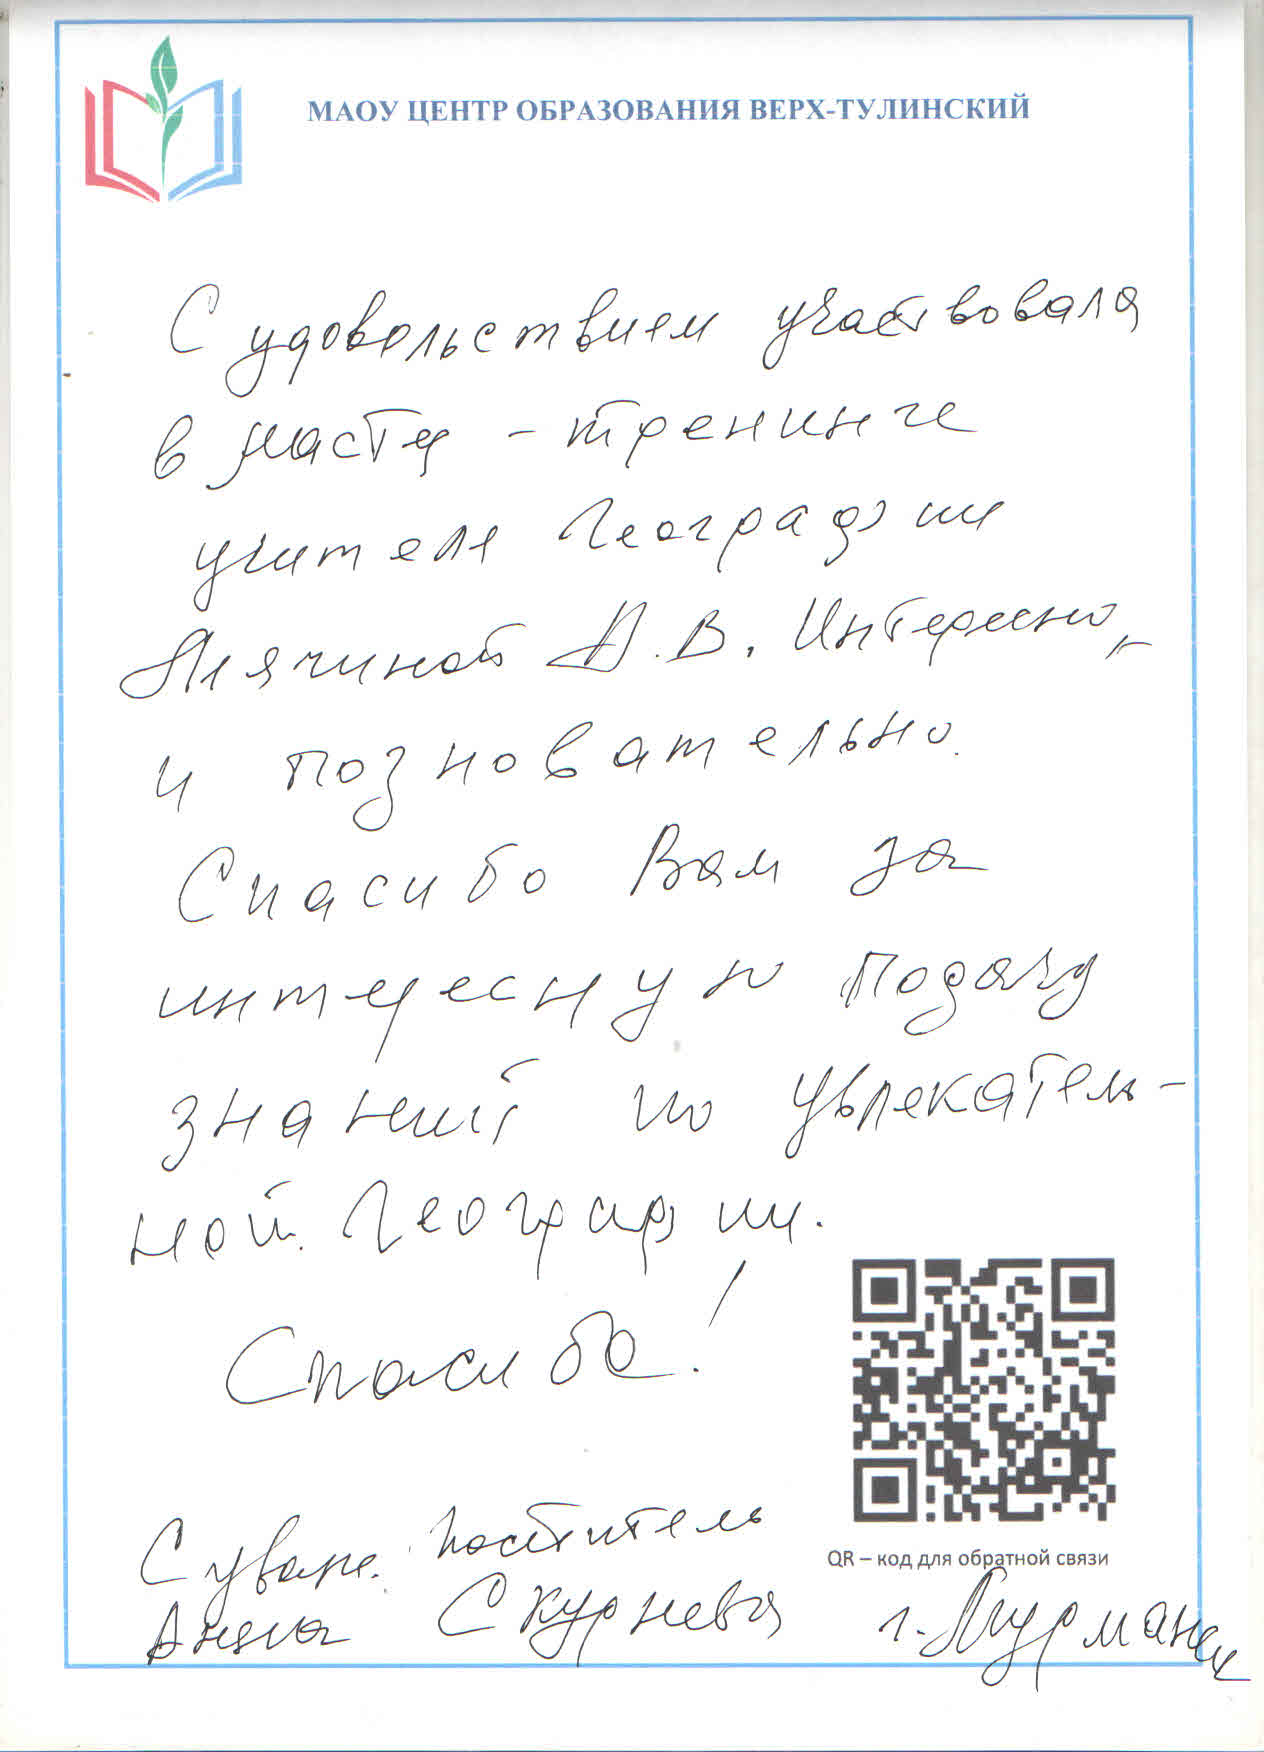 МАОУ ЦЕНТР ОБРАЗОВАНИЯ ВЕРХ-ТУЛИНСКИЙ
С удовольствием участвовала
в - тренинге
учителя Географии
А.В. Интересно
и позновательно.
Спасибо Вам за
интересную подачу
знаний по увлекатель-
ной Географии.
Спасибо!
С уваж. посетитель
QR – код для обратной связи
Анна Скурнева г. Мурманск